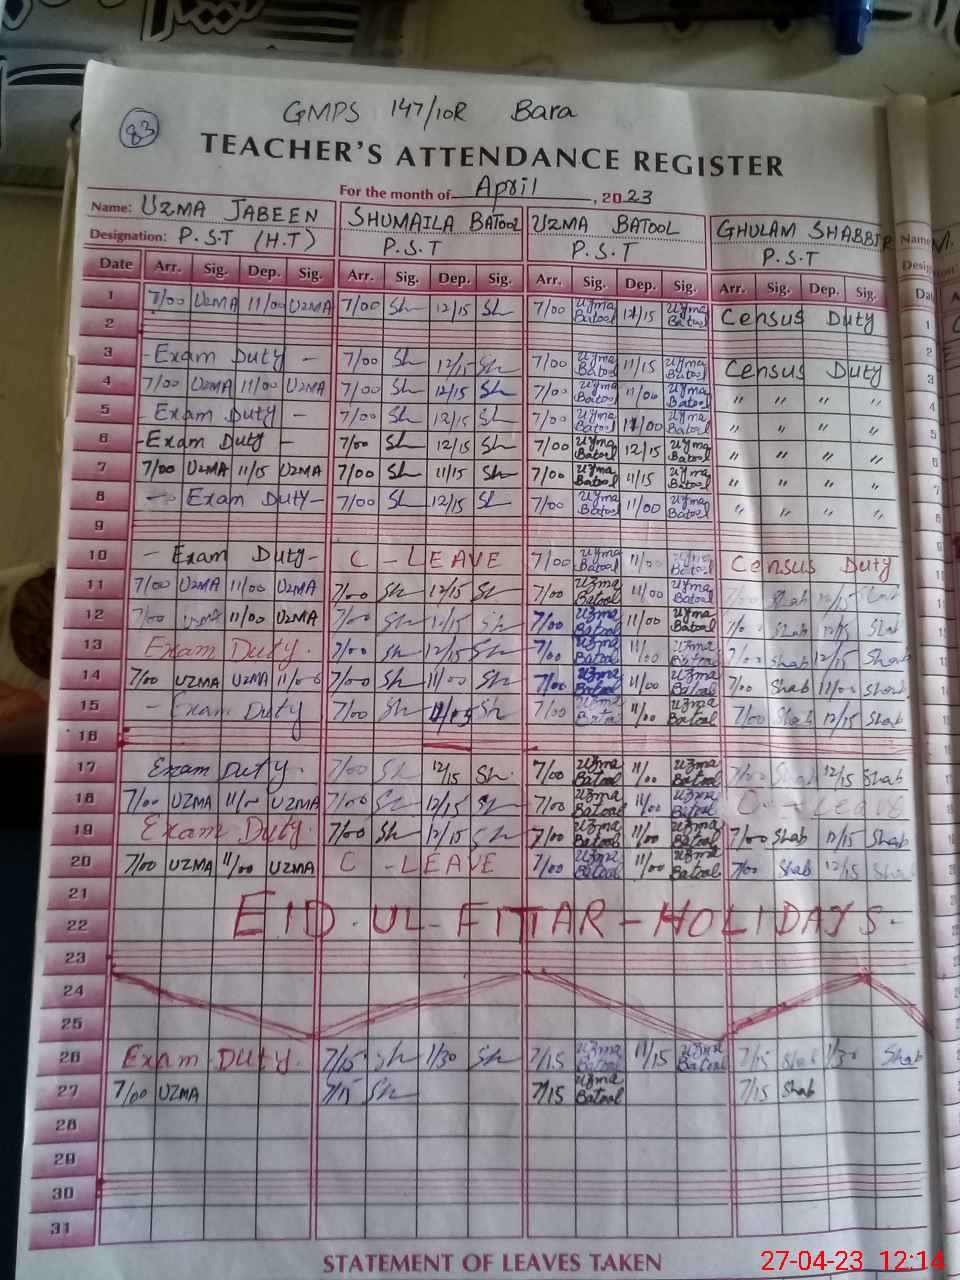 83
GMPS 147/10R Bara
TEACHER'S ATTENDANCE REGISTER
For the month of April, 2023
Name: UZMA JABEEN SHUMAILA BATOOL UZMA BATOOL GHULAM SHABBIR Name
Designation: P.S.T (H.T) P.S.T P.S.T P.S.T
Date Arr. Sig. Dep. Sig. Arr. Sig. Dep. Sig. Arr. Sig. Dep. Sig. Arr. Sig. Dep. Sig.
1 7/00 UZMA 11/00 UZMA 7/00 Sh 12/15 Sh 7/00 Uzma Batool 12/15 Uzma Batool Census Duty
2
3 - Exam Duty - 7/00 Sh 12/15 Sh 7/00 Uzma Batool 11/15 Uzma Batool Census Duty
4 7/00 UZMA 11/00 UZMA 7/00 Sh 12/15 Sh 7/00 Uzma Batool 11/00 Uzma Batool " " " "
5 - Exam Duty - 7/00 Sh 12/15 Sh 7/00 Uzma Batool 11/00 Uzma Batool " " " "
6 - Exam Duty - 7/00 Sh 12/15 Sh 7/00 Uzma Batool 12/15 Uzma Batool " " " "
7 7/00 UZMA 11/15 UZMA 7/00 Sh 11/15 Sh 7/00 Uzma Batool 11/15 Uzma Batool " " " "
8 - Exam Duty - 7/00 Sh 12/15 Sh 7/00 Uzma Batool 11/00 Uzma Batool " " " "
9
10 - Exam Duty - C - LEAVE 7/00 Uzma Batool 11/00 Uzma Batool Census Duty
11 7/00 UZMA 11/00 UZMA 7/00 Sh 12/15 Sh 7/00 Uzma Batool 11/00 Uzma Batool 7/00 Shab 12/15 Shab
12 7/00 UZMA 11/00 UZMA 7/00 Sh 12/15 Sh 7/00 Uzma Batool 11/00 Uzma Batool 7/00 Shab 12/15 Shab
13 Exam Duty. 7/00 Sh 12/15 Sh 7/00 Uzma Batool 11/00 Uzma Batool 7/00 Shab 12/15 Shab
14 7/00 UZMA UZMA 11/00 7/00 Sh 11/00 Sh 7/00 Uzma Batool 11/00 Uzma Batool 7/00 Shab 11/00 Shab
15 - Exam Duty 7/00 Sh Sh 7/00 Uzma Batool 11/00 Uzma Batool 7/00 Shab 12/15 Shab
16
17 Exam Duty. 7/00 Sh 12/15 Sh. 7/00 Uzma Batool 11/00 Uzma Batool 7/00 Shab 12/15 Shab
18 7/00 UZMA 11/00 UZMA 7/00 Sh 12/15 Sh 7/00 Uzma Batool 11/00 Uzma Batool C - Leave
19 Exam Duty. 7/00 Sh 12/15 Sh 7/00 Uzma Batool 11/00 Uzma Batool 7/00 Shab 12/15 Shab
20 7/00 UZMA 11/00 UZMA C - LEAVE 7/00 Uzma Batool 11/00 Uzma Batool 7/00 Shab 12/15 Shab
21
22 EID-UL-FITTAR-HOLIDAYS-
23
24
25
26 Exam Duty. 7/15 Sh 1/30 Sh 7/15 Uzma Batool 11/15 Uzma Batool 7/15 Shab 1/30 Shab
27 7/00 UZMA 7/15 Sh 7/15 Uzma Batool 7/15 Shab
28
29
30
31
STATEMENT OF LEAVES TAKEN
27-04-23 12:14